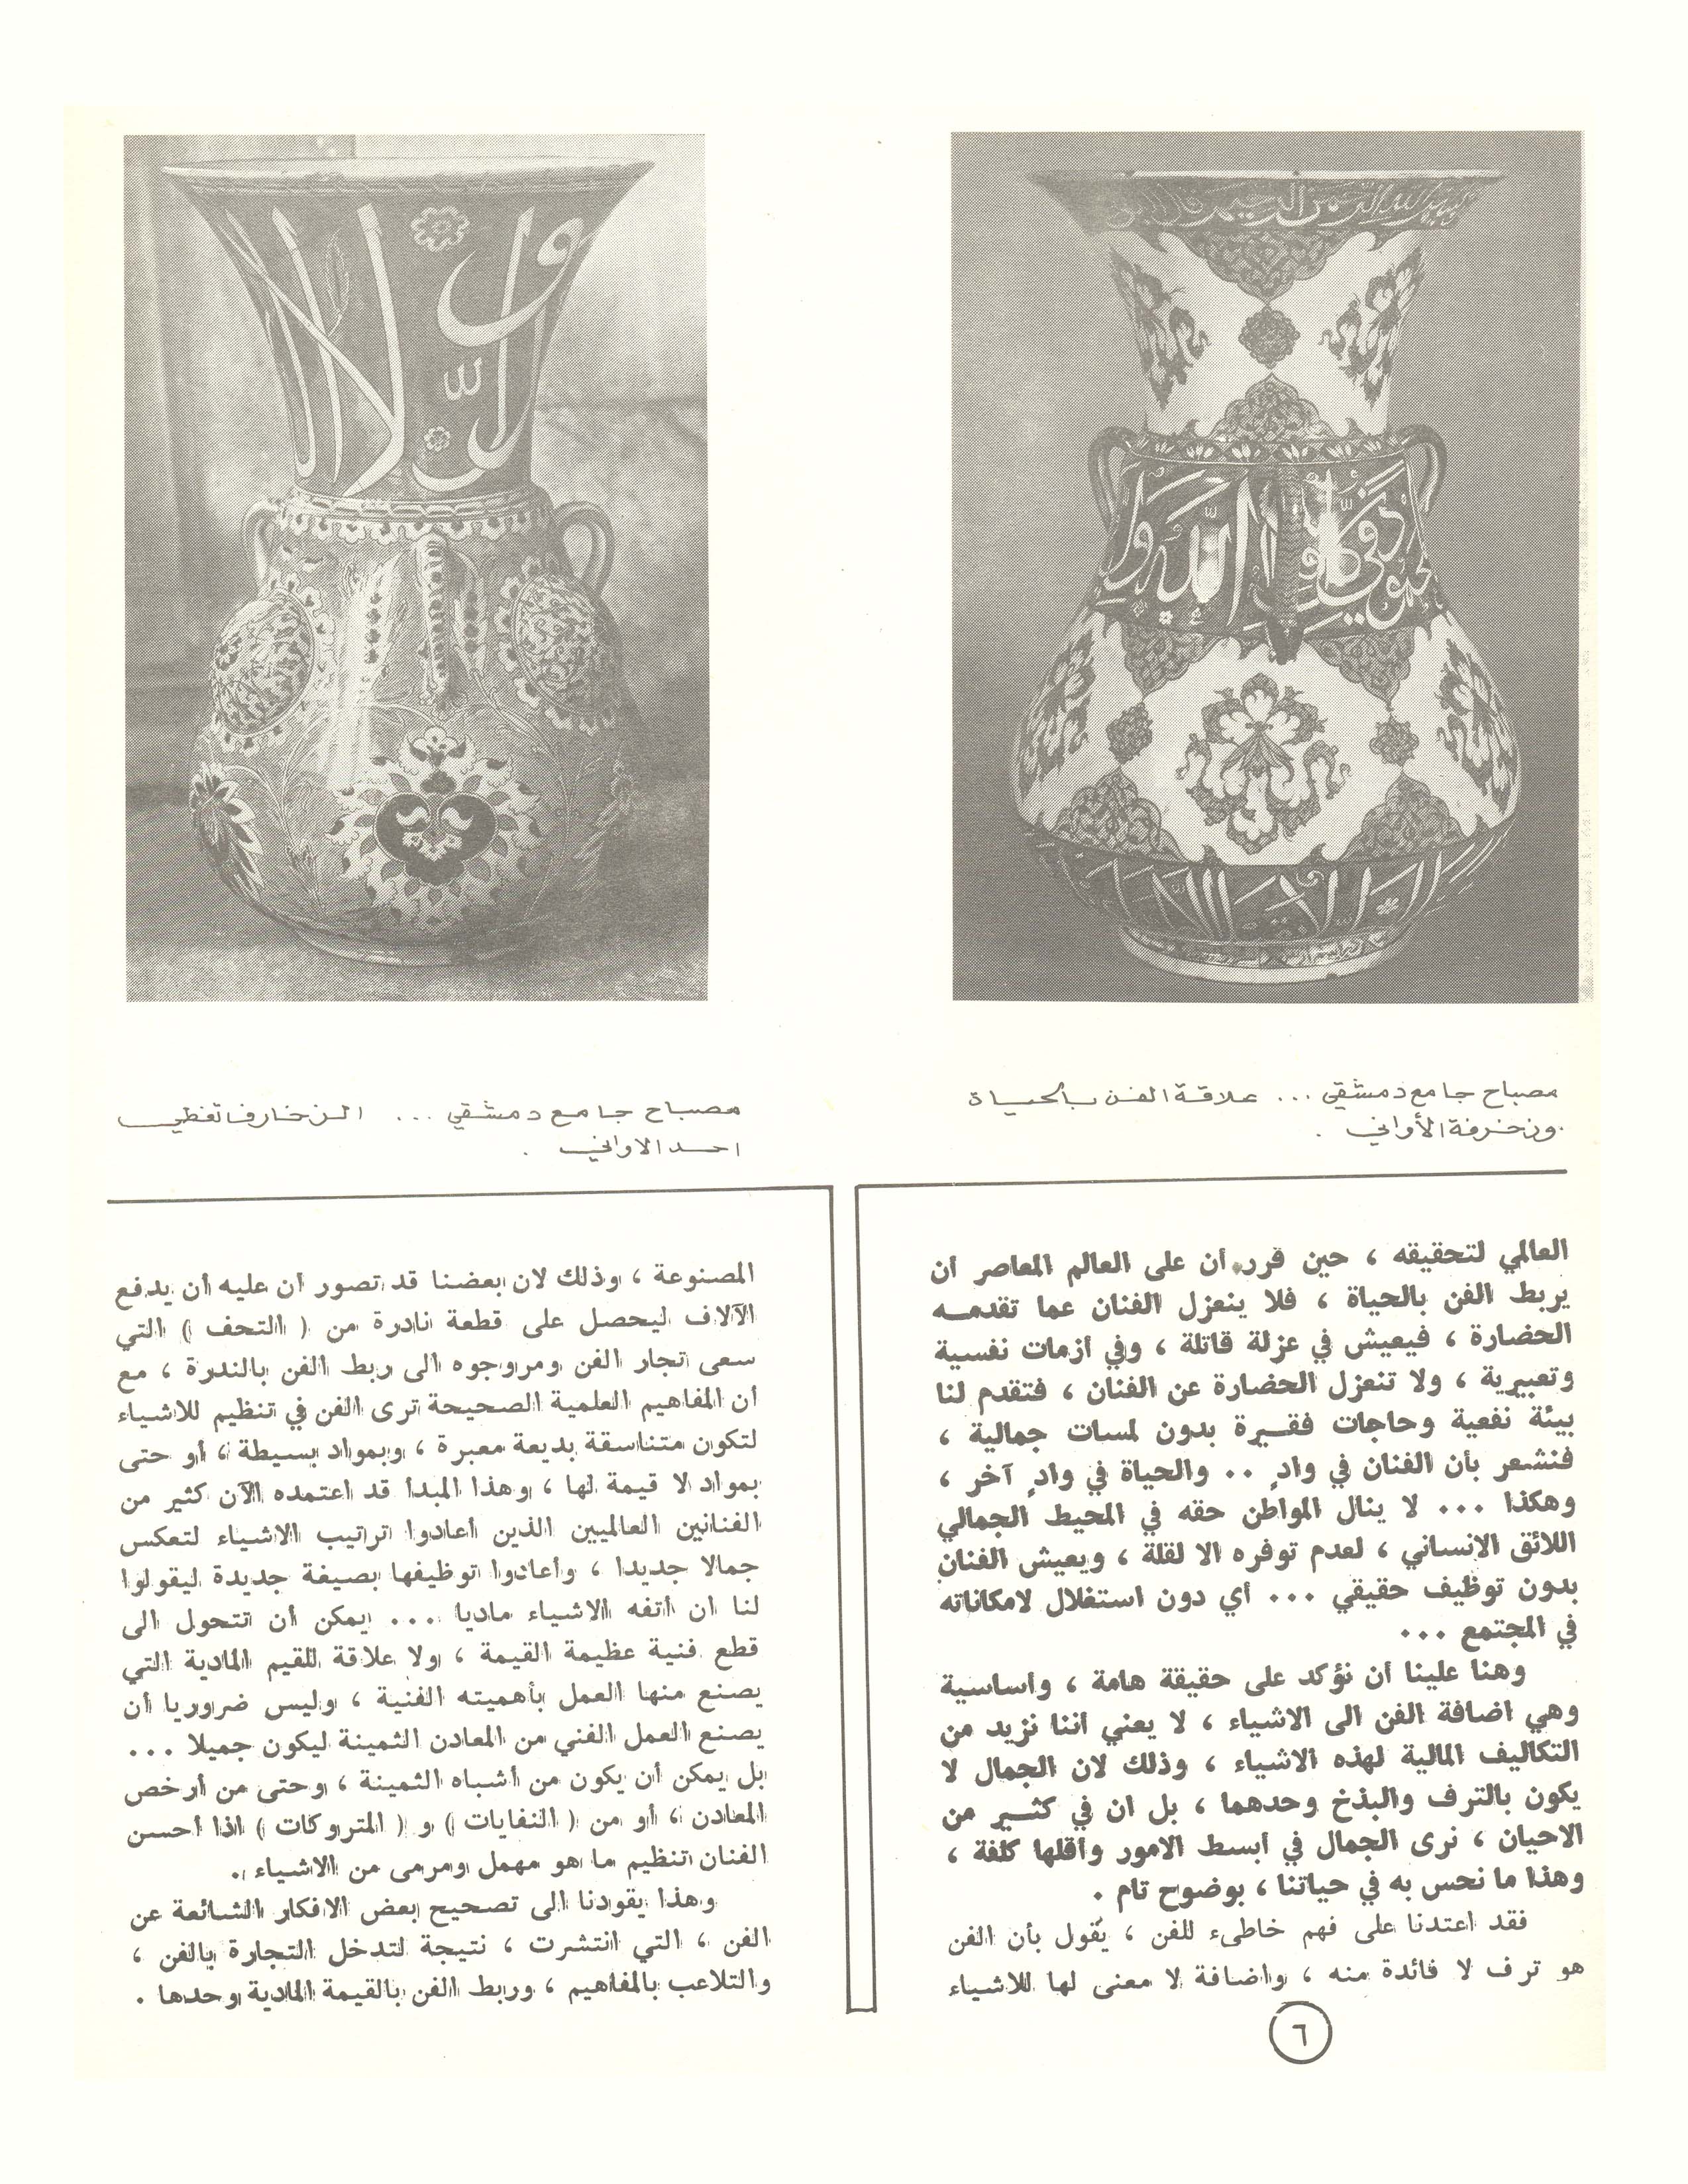 مصباح جامع دمشقي ... علاقة الفن بالحياة
وزخرفة الأواني .
مصباح جامع دمشقي ... الزخارف تغطي
احد الاواني .
العالمي لتحقيقه ، حين قرر أن على العالم المعاصر أن
يربط الفن بالحياة ، فلا ينعزل الفنان عما تقدمه
الحضارة ، فيعيش في عزلة قاتلة ، وفي أزمات نفسية
وتعبيرية ، ولا تنعزل الحضارة عن الفنان ، فتقدم لنا
بيئة نفعية وحاجات فقيرة بدون لمسات جمالية ،
فنشعر بأن الفنان في وادٍ .. والحياة في وادٍ آخر ،
وهكذا ... لا ينال المواطن حقه في المحيط الجمالي
اللائق الانساني ، لعدم توفره الا لقلة ، ويعيش الفنان
بدون توظيف حقيقي ... أي دون استغلال لامكاناته
في المجتمع ...
وهنا علينا أن نؤكد على حقيقة هامة ، وأساسية
وهي اضافة الفن الى الاشياء ، لا يعني أننا نزيد من
التكاليف المالية لهذه الاشياء ، وذلك لان الجمال لا
يكون بالترف والبذخ وحدهما ، بل ان في كثير من
الاحيان ، نرى الجمال في أبسط الامور وأقلها كلفة ،
وهذا ما نحس به في حياتنا ، بوضوح تام .
فقد اعتدنا على فهم خاطىء للفن ، يُقول بأن الفن
هو ترف لا فائدة منه ، واضافة لا معنى لها للاشياء
المصنوعة ، وذلك لان بعضنا قد تصور أن عليه أن يدفع
الآلاف ليحصل على قطعة نادرة من ( التحف ) التي
سعى تجار الفن ومروجوه الى ربط الفن بالندرة ، مع
أن المفاهيم العلمية الصحيحة ترى الفن في تنظيم للاشياء
لتكون متناسقة بديعة معبرة ، وبمواد بسيطة ، أو حتى
بمواد لا قيمة لها ، وهذا المبدأ قد اعتمده الآن كثير من
الفنانين العالميين الذين أعادوا تراتيب الاشياء لتعكس
جمالا جديدا ، وأعادوا توظيفها بصيغة جديدة ليقولوا
لنا ان أتفه الاشياء ماديا ... يمكن أن تتحول الى
قطع فنية عظيمة القيمة ، ولا علاقة للقيم المادية التي
يصنع منها العمل بأهميته الفنية ، وليس ضروريا أن
يصنع العمل الفني من المعادن الثمينة ليكون جميلا ...
بل يمكن أن يكون من أشباه الثمينة ، وحتى من أرخص
المعادن ، أو من ( النفايات ) و ( المتروكات ) اذا أحسن
الفنان تنظيم ما هو مهمل ومرمى من الاشياء .
وهذا يقودنا الى تصحيح بعض الافكار الشائعة عن
الفن ، التي انتشرت ، نتيجة لتدخل التجارة بالفن ،
والتلاعب بالمفاهيم ، وربط الفن بالقيمة المادية وحدها .
٦